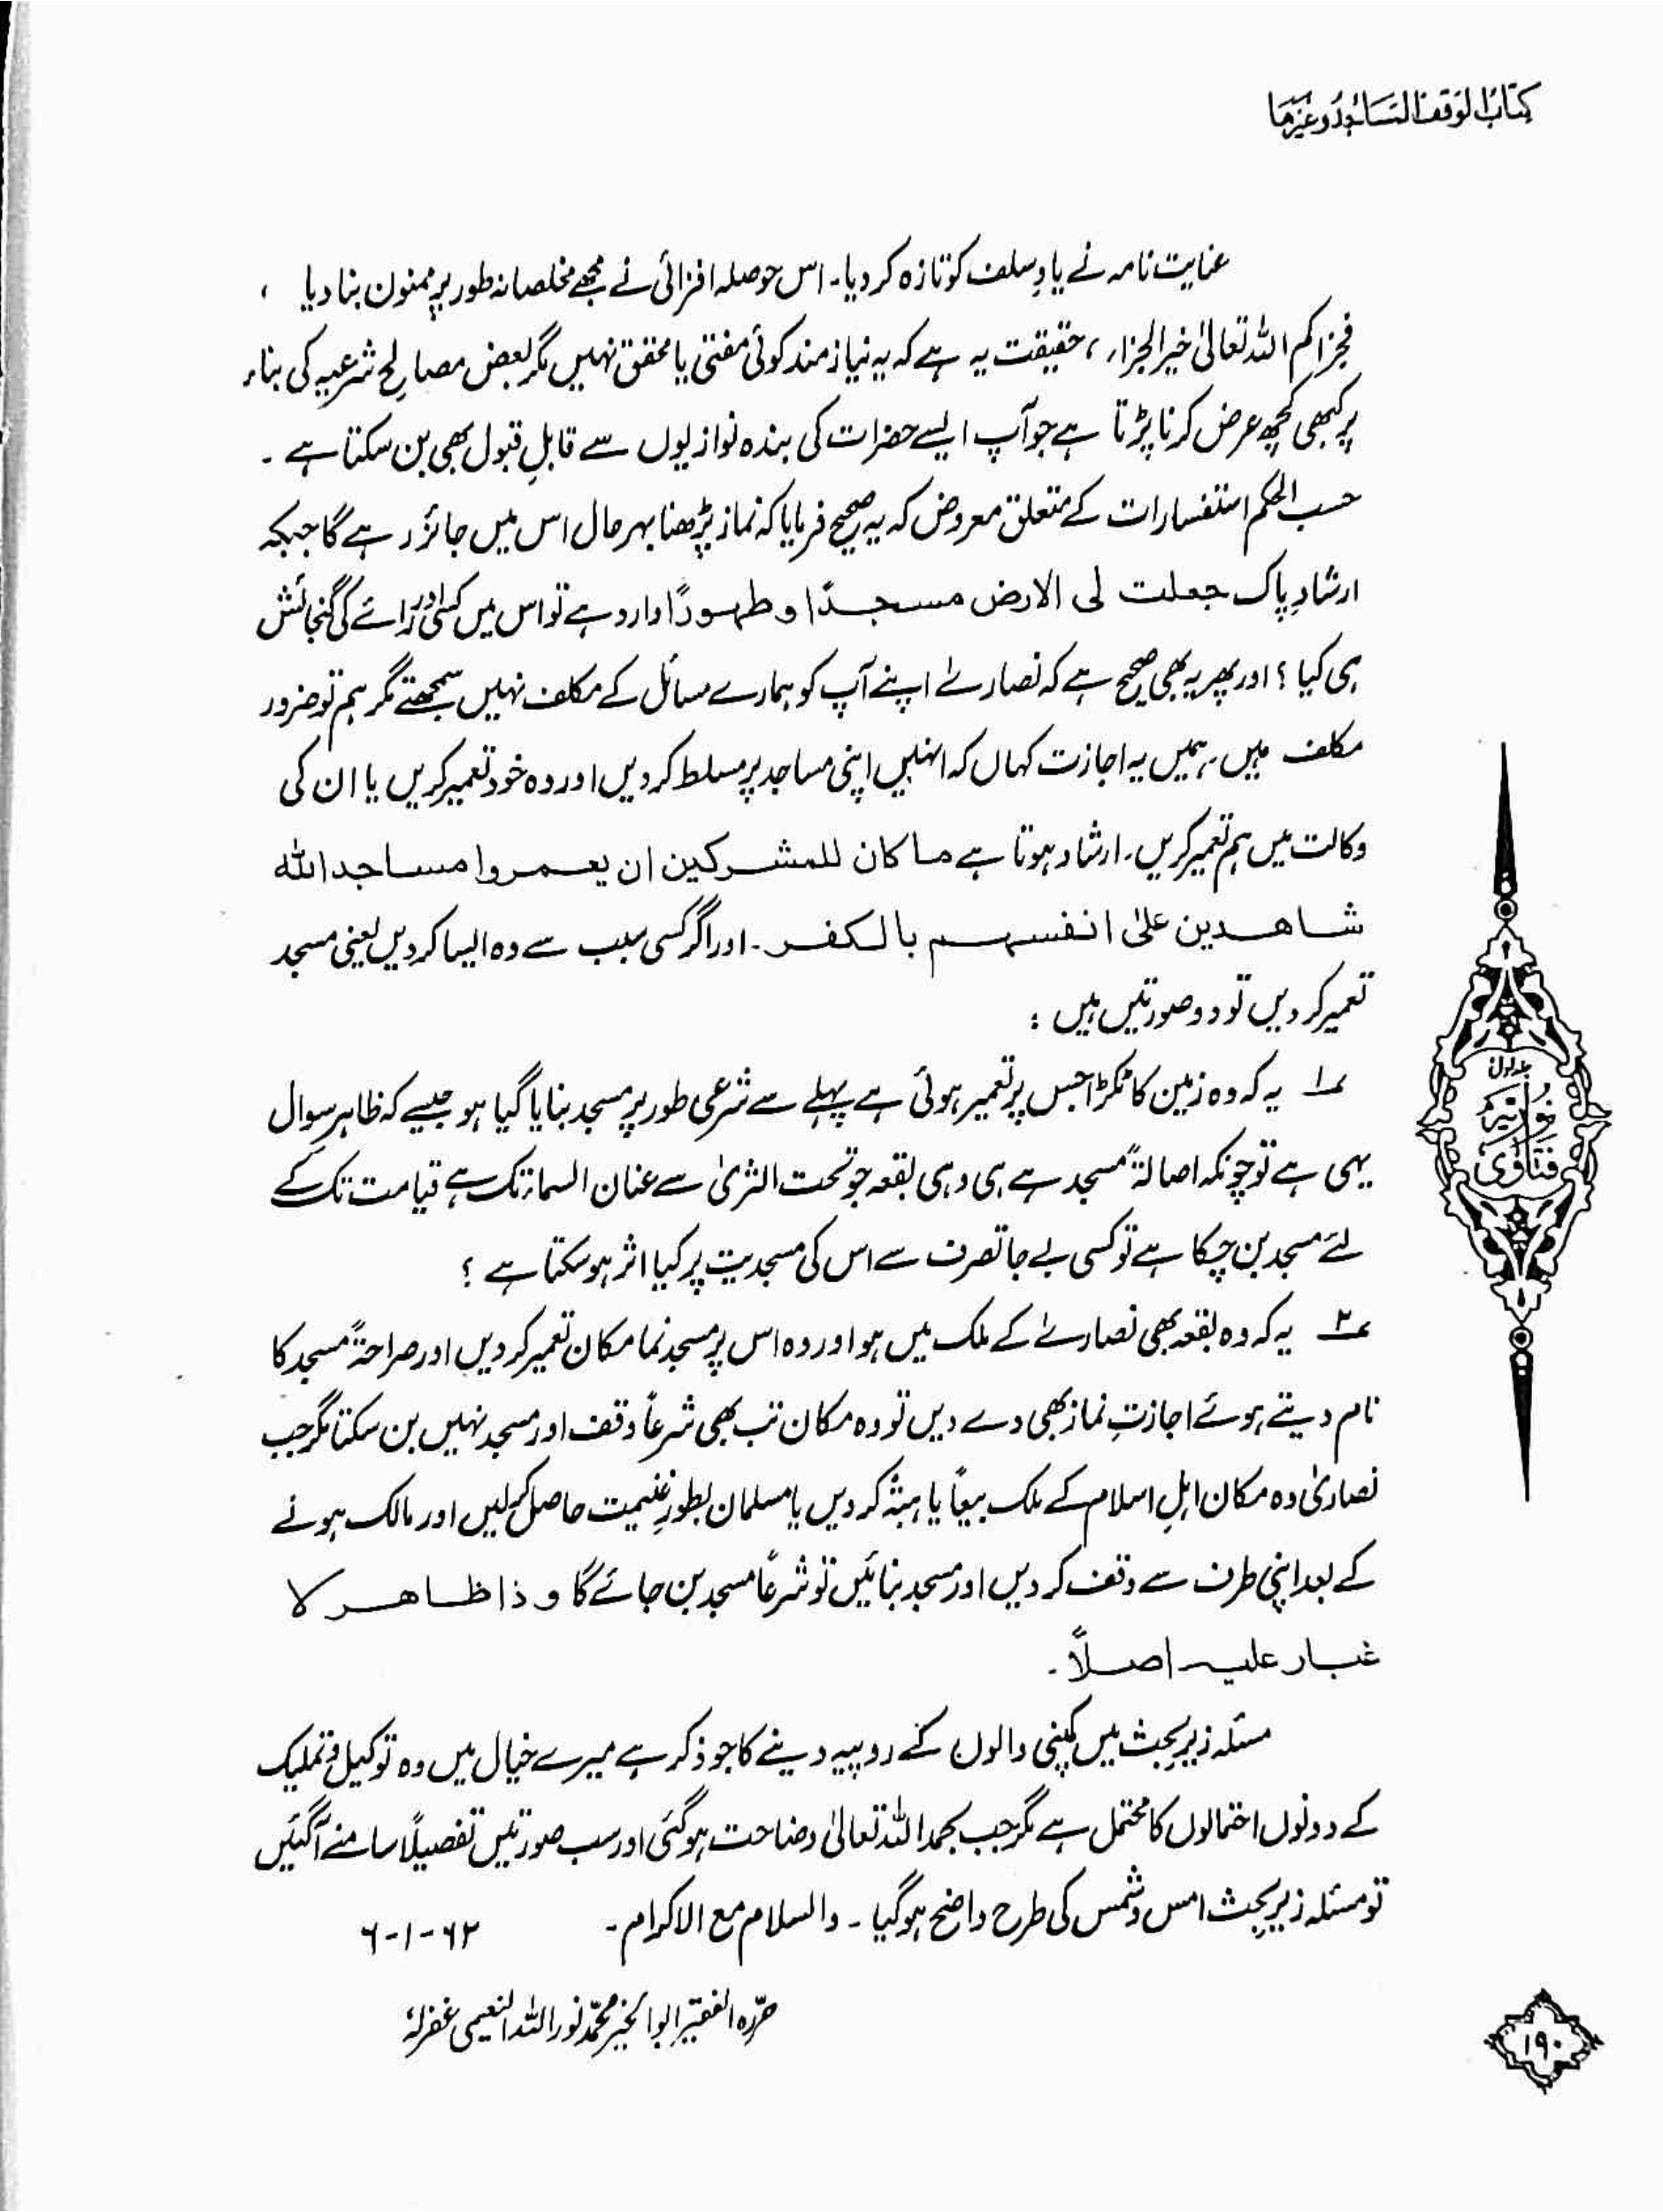 کتاب الوقف المساجد وغیرہا
عنایت نامہ نے یادِ سلف کو تازہ کر دیا۔ اس حوصلہ افزائی نے مجھے مخلصانہ طور پر ممنون بنا دیا ،
فجزاکم اللہ تعالیٰ خیر الجزاء ، حقیقت یہ ہے کہ یہ نیاز مند کوئی مفتی یا محقق نہیں مگر بعض مصالح شرعیہ کی بناء
پر کبھی کچھ عرض کرنا پڑتا ہے جو آپ ایسے حضرات کی بندہ نوازیوں سے قابلِ قبول بھی بن سکتا ہے ۔
حسب الحکم استفسارات کے متعلق معروض کہ یہ صحیح فرمایا کہ نماز پڑھنا بہر حال اس میں جائز رہے گا جبکہ
ارشادِ پاک جعلت لی الارض مسجدًا و طہورًا وارد ہے تو اس میں کسی اور رائے کی گنجائش
ہی کیا ؟ اور پھر یہ بھی صحیح ہے کہ نصاریٰ اپنے آپ کو ہمارے مسائل کے مکلف نہیں سمجھتے مگر ہم تو ضرور
مکلف ہیں، ہمیں یہ اجازت کہاں کہ انہیں اپنی مساجد پر مسلط کر دیں اور وہ خود تعمیر کریں یا ان کی
وکالت میں ہم تعمیر کریں۔ ارشاد ہوتا ہے ما کان للمشرکین ان یعمروا مساجد اللہ
شاھدین علیٰ انفسہم بالکفر ۔ اور اگر کسی سبب سے وہ ایسا کر دیں یعنی مسجد
تعمیر کر دیں تو دو صورتیں ہیں :
۱؎ یہ کہ وہ زمین کا ٹکڑا جس پر تعمیر ہوئی ہے پہلے سے شرعی طور پر مسجد بنایا گیا ہو جیسے کہ ظاہرِ سوال
یہی ہے تو چونکہ اصالۃً مسجد ہے ہی وہی بقعہ جو تحت الثریٰ سے عنان السماء تک ہے قیامت تک کے
لئے مسجد بن چکا ہے تو کسی بے جا تصرف سے اس کی مسجدیت پر کیا اثر ہو سکتا ہے ؟
۲؎ یہ کہ وہ بقعہ بھی نصاریٰ کے ملک میں ہو اور وہ اس پر مسجد نما مکان تعمیر کر دیں اور صراحۃً مسجد کا
نام دیتے ہوئے اجازتِ نماز بھی دے دیں تو وہ مکان تب بھی شرعاً وقف اور مسجد نہیں بن سکتا مگر جب
نصاریٰ وہ مکان اہلِ اسلام کے ملک بیعاً یا ہبۃً کر دیں یا مسلمان بطورِ غنیمت حاصل کر لیں اور مالک ہونے
کے بعد اپنی طرف سے وقف کر دیں اور مسجد بنائیں تو شرعاً مسجد بن جائے گا و ذا ظاھر لا
غبار علیہ اصلاً۔
مسئلہ زیرِ بحث میں کمپنی والوں کے روپیہ دینے کا جو ذکر ہے میرے خیال میں وہ توکیل و تملیک
کے دونوں احتمالوں کا محتمل ہے مگر جب بحمد اللہ تعالیٰ وضاحت ہو گئی اور سب صورتیں تفصیلاً سامنے آگئیں
تو مسئلہ زیرِ بحث امس و شمس کی طرح واضح ہو گیا ۔ والسلام مع الاکرام۔ ۶۲-۱-۶
حررہ الفقیر ابوالخیر محمد نور اللہ النعیمی غفرلہٗ
جلد اول
فتاویٰ نوریہ
۱۹۰